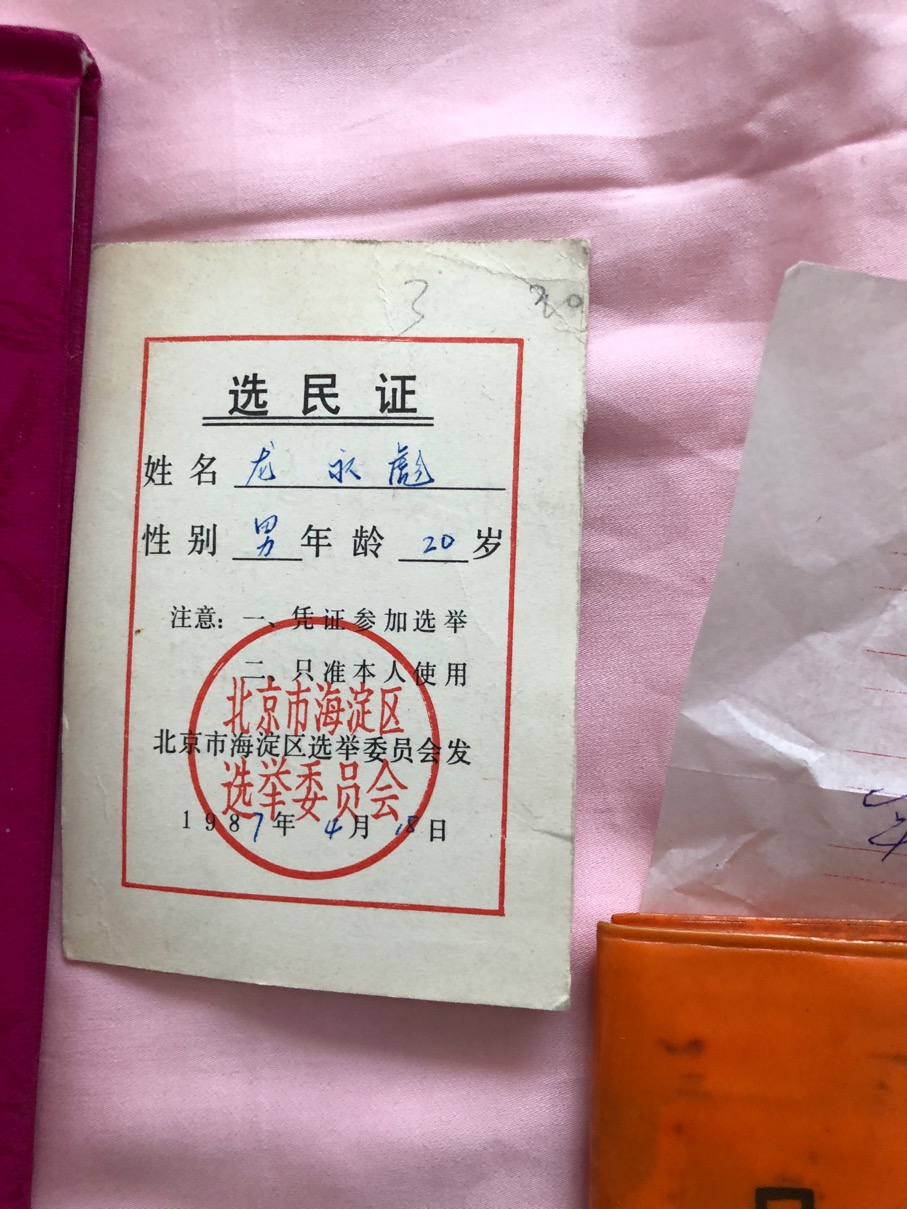 3 20
选民证
姓名 龙永彪
性别 男 年龄 20 岁
注意：一、凭证参加选举
二、只准本人使用
北京市海淀区
北京市海淀区选举委员会发
选举委员会
1987年4月15日